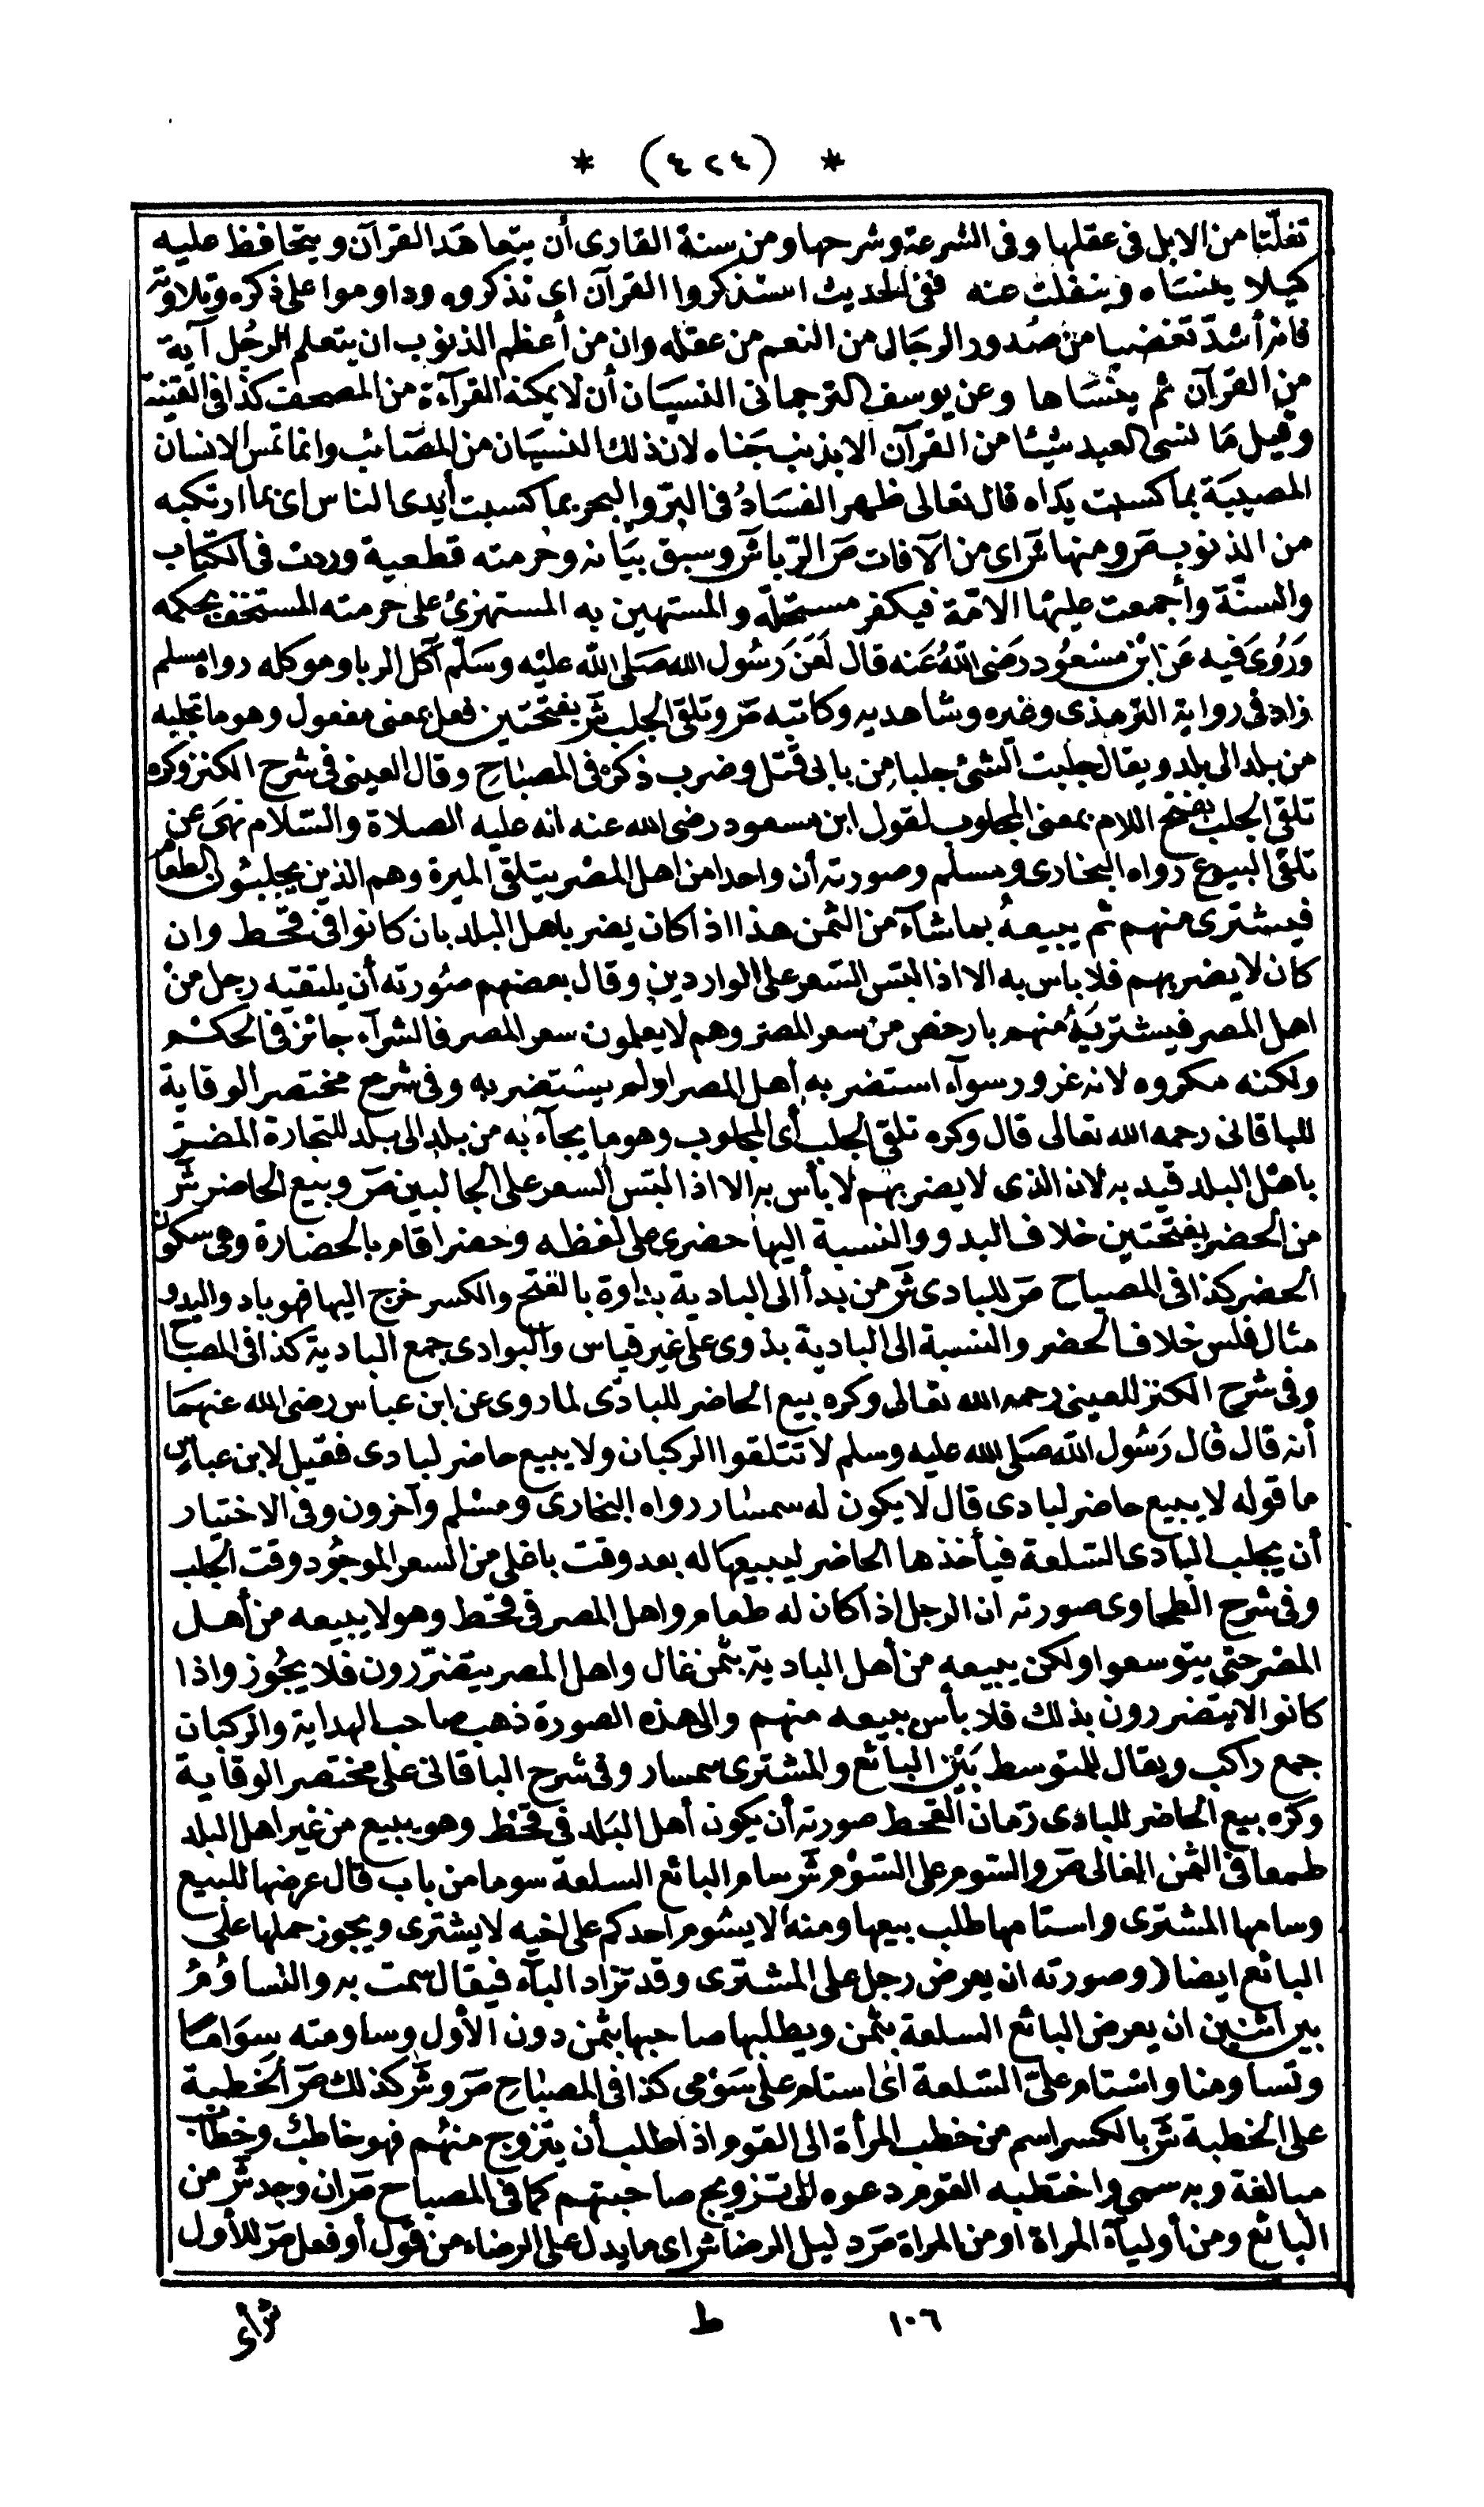 * (٤٢٤) *
تفلتا من الابل فى عقلها وفى الشرعة وشرحها ومن سنة القارى أن يتعاهد القرآن ويتحافظ عليه
كيلا ينساه وينفلت عنه ففى الحديث استذكروا القرآن اى تذكروه وداوموا على ذكره وتلاوته
فانه أشد تفصيا من صدور الرجال من النعم من عقله وان من أعظم الذنوب ان يتعلم الرجل آية
من القرآن ثم ينساها وعن يوسف الترجمانى النسيان أن لا يمكنه القرآءة من المصحف كذا فى القنية
وقيل ما نسى العبد شيئا من القرآن الا بذنب جناه لان ذلك النسيان من المصائب وانما تمس الانسان
المصيبة بما كسبت يداه قال تعالى ظهر الفساد فى البر والبحر بما كسبت أيدى الناس اى بما ارتكبه
من الذنوب صر ومنها شر اى من الآفات صر الربا شر وسبق بيانه وحرمته قطعية وردت فى الكتاب
والسنة وأجمعت عليها الامة فيكفر مستحله والمستهين به المستهزئ على حرمته المستخف بحكمه
وروى فيه عن ابن مسعود رضى الله عنه قال لعن رسول الله صلى الله عليه وسلم آكل الربا وموكله رواه مسلم
زاد فى رواية الترمذى وغيره وشاهديه وكاتبه صر وتلقى الجلب شر بفتحتين فعل بمعنى مفعول وهو ما تجلبه
من بلد الى بلد ويقال جلبت الشئ جلبا من بابى قتل وضرب ذكره فى المصباح وقال العينى فى شرح الكنز وكره
تلقى الجلب بفتح اللام بمعنى المجلوب لقول ابن مسعود رضى الله عنه انه عليه الصلاة والسلام نهى عن
تلقى البيوع رواه البخارى ومسلم وصورته أن واحدا من اهل المصر يتلقى الميرة وهم الذين يجلبون الطعام
فيشترى منهم ثم يبيعه بما شآء من الثمن هذا اذا كان يضر باهل البلد بان كانوا فى قحط وان
كان لا يضر بهم فلا بأس به الا اذا لبتس السعر على الواردين وقال بعضهم صورته أن يلتقيه رجل من
اهل المصر فيشتريه منهم بارخص من سعر المصر وهم لا يعلمون سعر المصر فالشرآء جائز فى الحكم
ولكنه مكروه لانه غرور سوآء استضر به أهل المصر او لم يستضر به وفى شرح مختصر الوقاية
للباقانى رحمه الله تعالى قال وكره تلقى الجلب أى المجلوب وهو ما يجآء به من بلد الى بلد للتجارة المضر
باهل البلد قيد به لان الذى لا يضر بهم لا بأس به الا اذا لبتس السعر على الجالبين صر وبيع الحاضر شر
من الحضر بفتحتين خلاف البدو والنسبة اليها حضرى على لفظه وحضر اقام بالحضارة وهى سكون
الحضر كذا فى المصباح صر للبادى شر من بدأ الى البادية بداوة بالفتح والكسر خرج اليها فهو باد والبدو
مثال فلس خلاف الحضر والنسبة الى البادية بدوى على غير قياس والبوادى جمع البادية كذا فى المصباح
وفى شرح الكنز للعينى رحمه الله تعالى وكره بيع الحاضر للبادى لما روى عن ابن عباس رضى الله عنهما
أنه قال قال رسول الله صلى الله عليه وسلم لا تتلقوا الركبان ولا يبيع حاضر لبادى فقيل لابن عباس
ما قوله لا يبيع حاضر لبادى قال لا يكون له سمسار رواه البخارى ومسلم وآخرون وفى الاختيار
أن يجلب البادى السلعة فيأخذها الحاضر ليبيعها له بعد وقت باغلى من السعر الموجود وقت الجلب
وفى شرح الطحاوى صورته ان الرجل اذا كان له طعام واهل المصر فى قحط وهو لا يبيعه من أهل
المصر حتى يتوسعوا ولكن يبيعه من أهل البادية بثمن غال واهل المصر يتضررون فلا يجوز واذا
كانوا لا يتضررون بذلك فلا بأس ببيعه منهم والى هذه الصورة ذهب صاحب الهداية والركبان
جمع راكب ويقال للمتوسط بين البائع والمشترى سمسار وفى شرح الباقانى على مختصر الوقاية
وكره بيع الحاضر للبادى زمان القحط صورته أن يكون أهل البلد فى قحط وهو يبيع من غير اهل البلد
طمعا فى الثمن الغالى صر والسوم على السوم شر سام البائع السلعة سوما من باب قال عرضها للبيع
وسامها المشترى واستامها طلب بيعها ومنه لا يسوم احدكم على اخيه لا يشترى ويجوز حملها على
البائع ايضا (وصورته ان يعرض رجل على المشترى وقد تزاد البآء فيقال سمت به والتساوم
بين اثنين ان يعرض البائع السلعة بثمن ويطلبها صاحبها بثمن دون الأول وساومته سواما
وتساومنا واستام على السلعة اى استام على سومى كذا فى المصباح صر وشر كذلك صر الخطبة
على الخطبة شر بالكسر اسم من خطب المرأة الى القوم اذا طلب أن يتزوج منهم فهو خاطب وخطاب
مبالغة وبه سمى واختطبه القوم دعوه الى تزويج صاحبتهم كما فى المصباح صر ان وجد شر من
البائع ومن أوليآء المراة او من المراة صر دليل الرضا شر اى ما يدل على الرضاء من قول أو فعل صر للأول
١٠٦ ط شراى